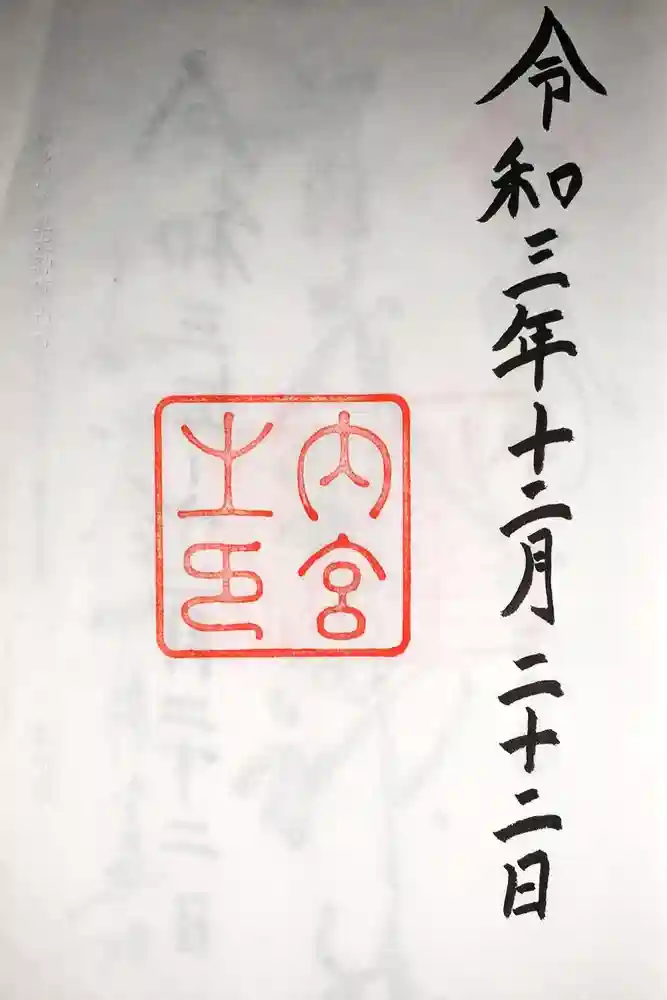 令和三年十二月二十二日
内宮
之印